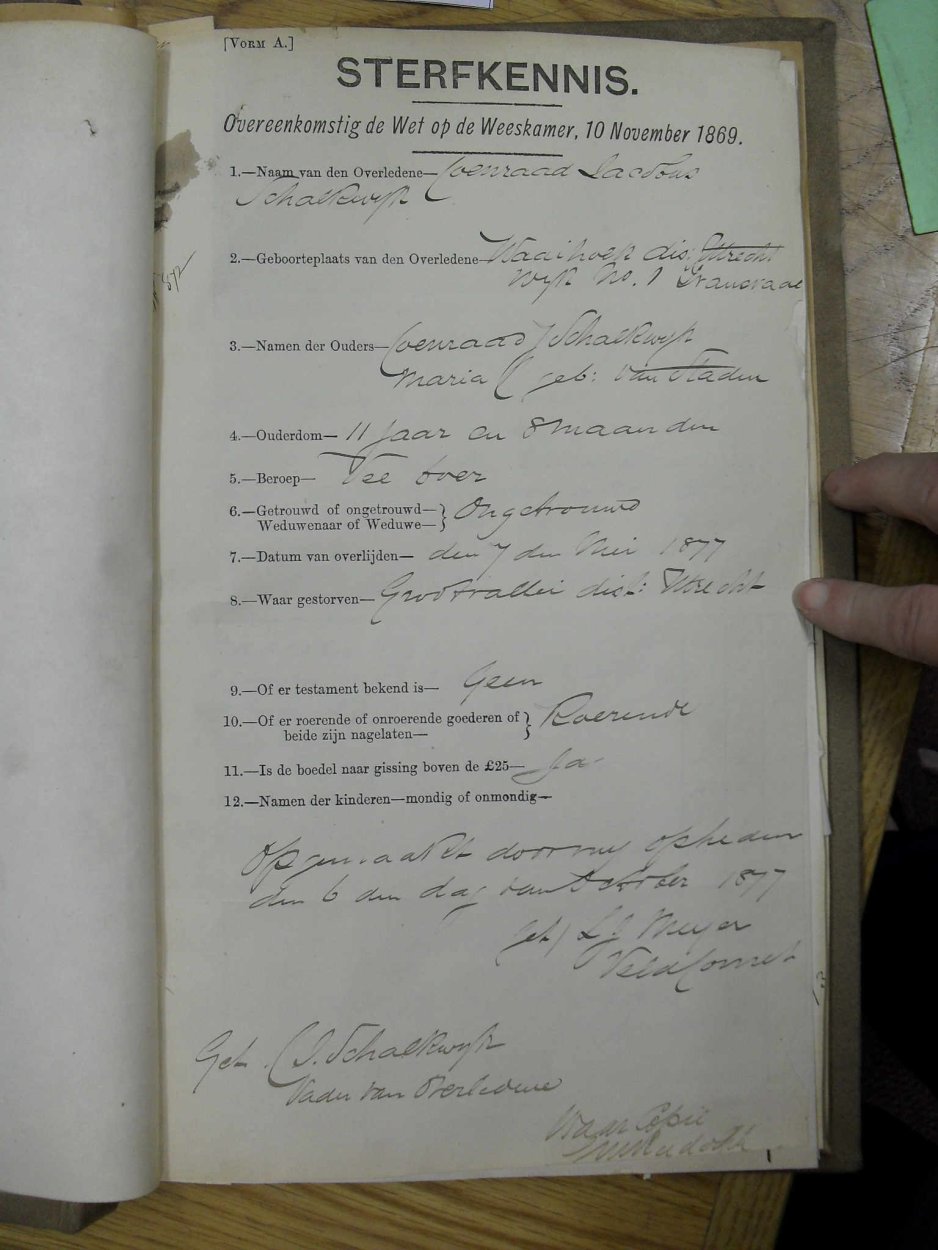 [VORM A.]
STERFKENNIS.
Overeenkomstig de Wet op de Weeskamer, 10 November 1869.
1.—Naam van den Overledene— Coenraad Jacobus
Schalkwyk
2.—Geboorteplaats van den Overledene— Waaihoek dis: Utrecht
wyk No. 1 Transvaal
3.—Namen der Ouders— Coenraad J Schalkwyk
Maria C geb: van Staden
4.—Ouderdom— 11 Jaar en 8 maanden
5.—Beroep— Vee boer
6.—Getrouwd of ongetrouwd— } Ongetrouwd
Weduwenaar of Weduwe—
7.—Datum van overlijden— den 7 den Mei 1877
8.—Waar gestorven— Grootvallei dist: Utrecht
9.—Of er testament bekend is— Geen
10.—Of er roerende of onroerende goederen of } Roerende
beide zijn nagelaten—
11.—Is de boedel naar gissing boven de £25— Ja
12.—Namen der kinderen—mondig of onmondig—
Opgemaakt door my op heden
den 6 den dag van October 1877
get) Meyer
Veld Cornet
Get. C J. Schalkwyk
Vader van Overledene
Waar Copie